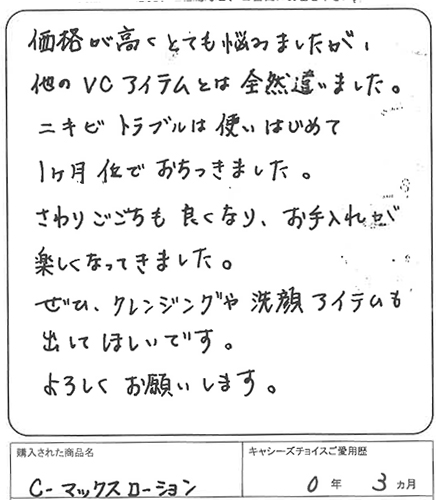 価格が高くとても悩みましたが、
他のVCアイテムとは全然違いました。
ニキビトラブルは使いはじめて
1ヶ月位でおちつきました。
さわりごごちも良くなり、お手入れが
楽しくなってきました。
ぜひ、クレンジングや洗顔アイテムも
出してほしいです。
よろしくお願いします。
購入された商品名
C-マックスローション
キャシーズチョイスご愛用歴
0年 3ヵ月